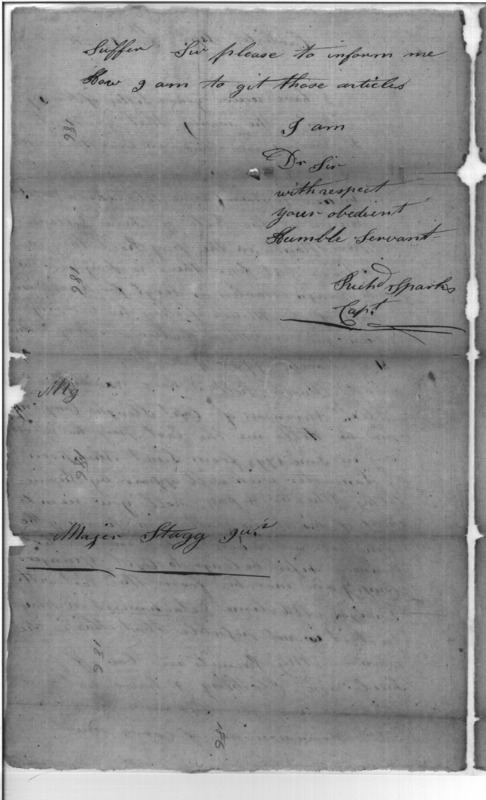 Suffer Sir please to inform me
How I am to git those articles
I am
Dr Sir
with respect
your obedient
Humble Servant
Richd Sparks
Capt
Majer Stagg Junr
186
186
186
186
186